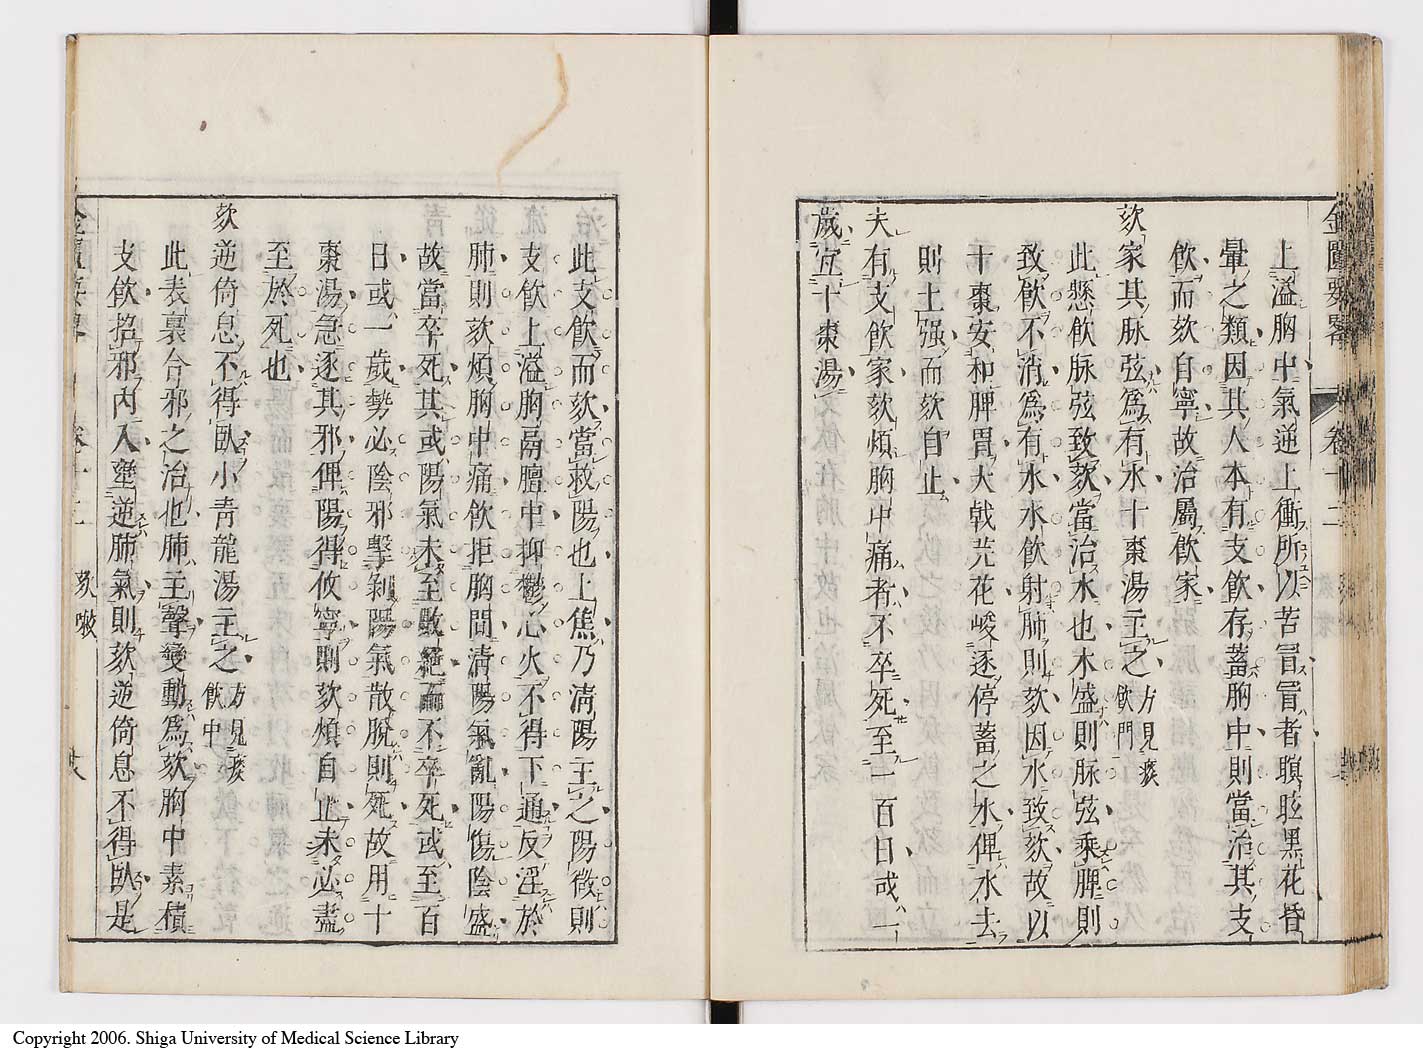 金匱要畧 卷十二
上溢胸中氣逆上衝所以苦冒冒者瞑眩黑花昏
暈之類因其人本有支飲存蓄胸中則當治其支
飲而欬自寧故治屬飲家
欬家其脉弦爲有水十棗湯主之方見痰飲門
此懸飲脉弦致欬當治水也木盛則脉弦乘脾則
致飲不消爲有水水飲射肺則欬因水致欬故以
十棗安和脾胃大戟芫花峻逐停蓄之水俾水去
則上强而欬自止
夫有支飲家欬煩胸中痛者不卒死至一百日或一
歲宜十棗湯
此支飲而欬當救陽也上焦乃清陽主之陽微則
支飲上溢胸鬲膻中抑鬱心火不得下通反淫於
肺則欬煩胸中痛飲拒胸間清陽氣亂陽傷陰盛
故當卒死其或陽氣未至斷絕而不卒死或至百
日或一歲勢必陰邪擊剝陽氣散脫則死故用十
棗湯急逐其邪俾陽得攸寧則欬煩自止未必盡
至於死也
欬逆倚息不得臥小青龍湯主之方見痰飲中
此表裏合邪之治也肺主聲變動爲欬胸中素積
支飲招邪內入壅逆肺氣則欬逆倚息不得臥是
欬嗽
Copyright 2006. Shiga University of Medical Science Library